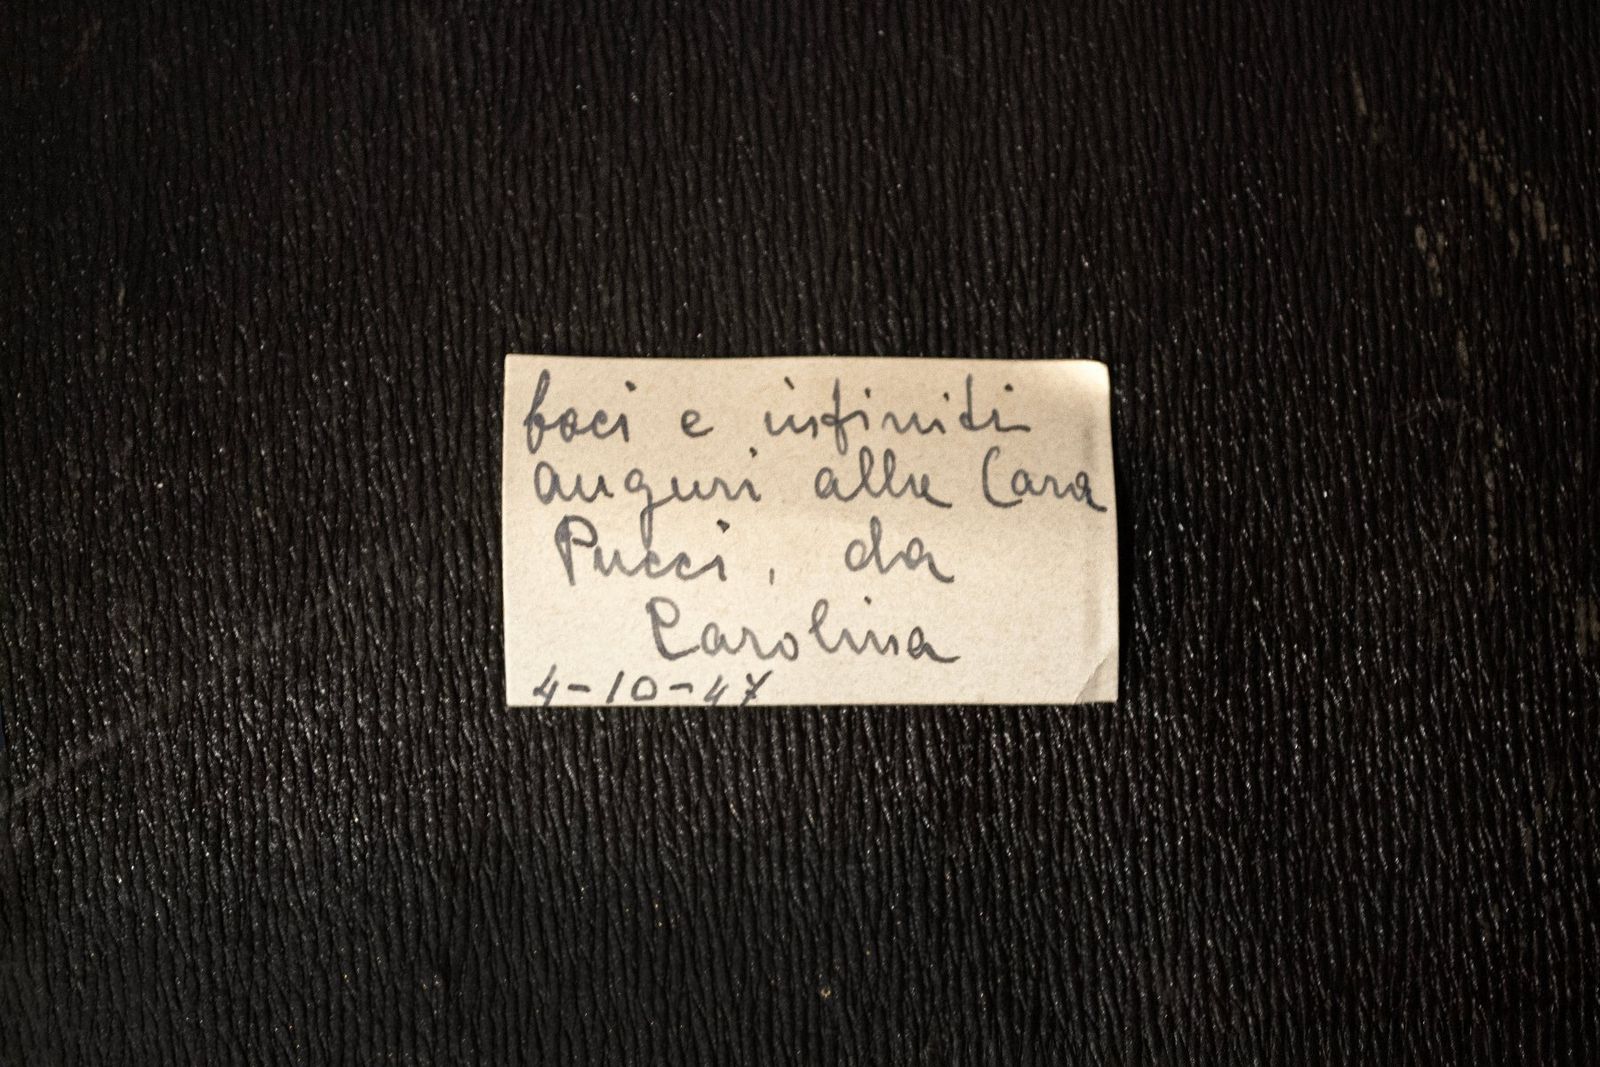 baci e infiniti
auguri alla Cara
Pucci, da
Carolina
4-10-47